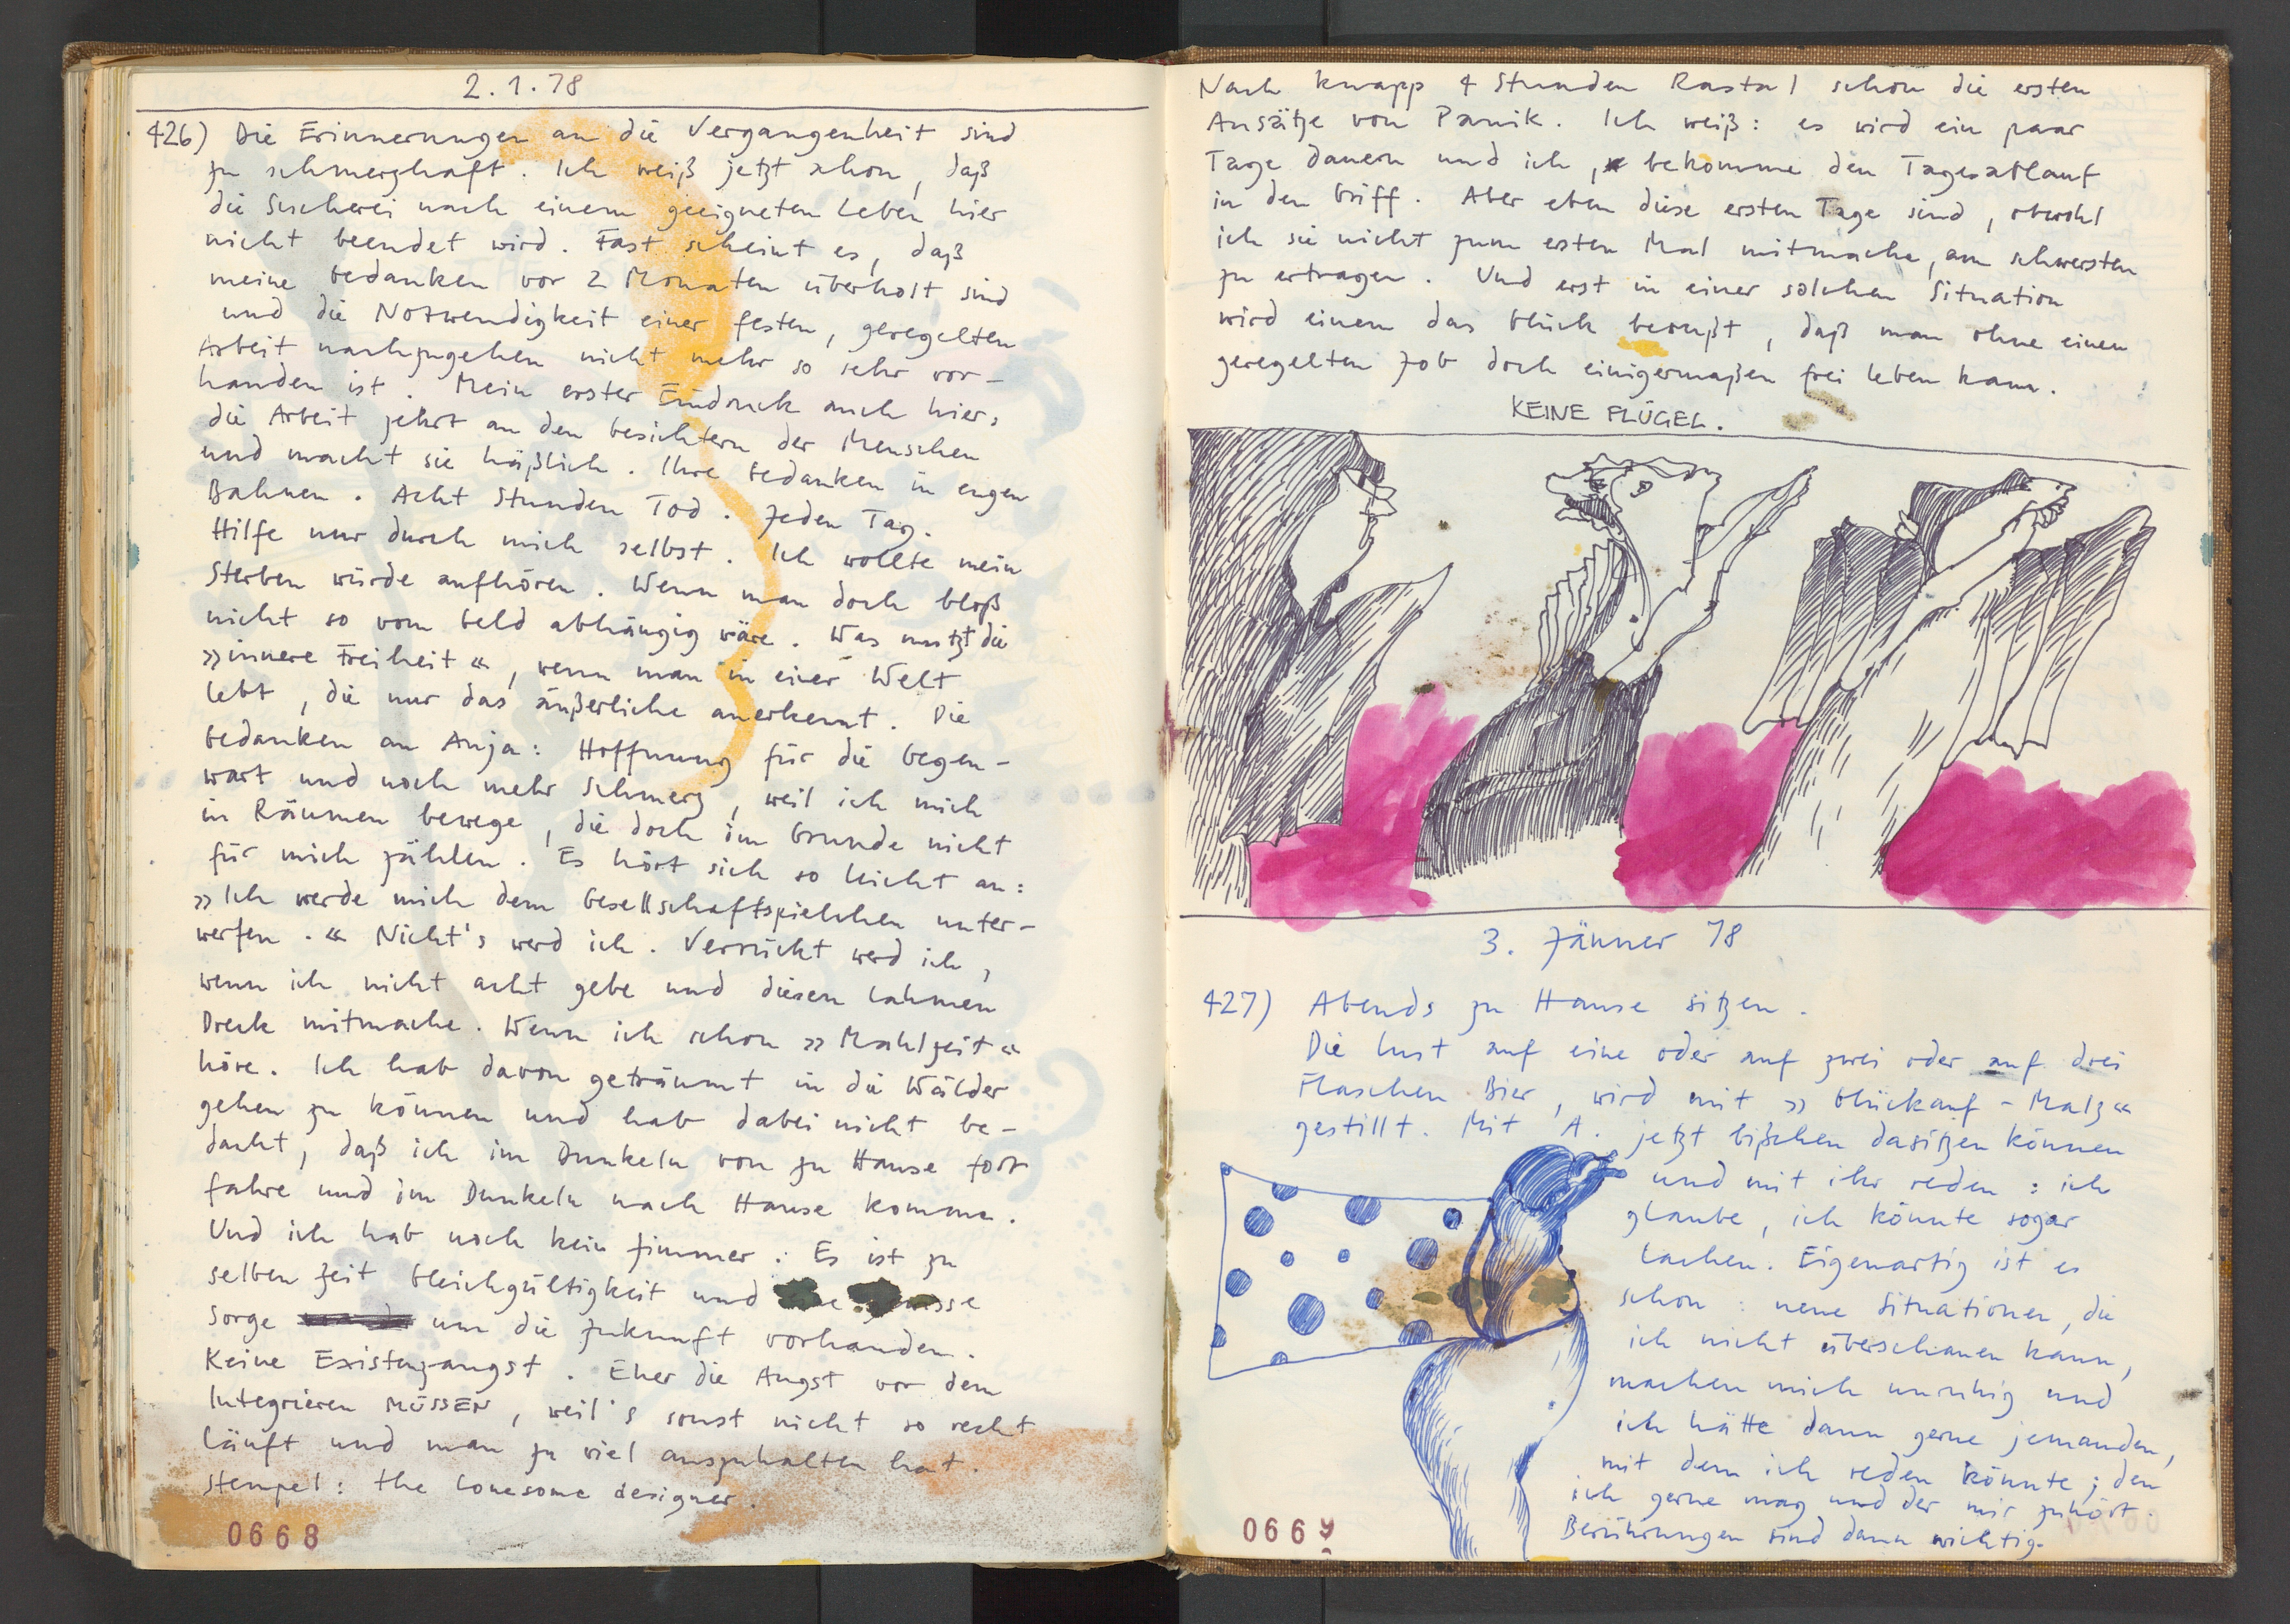 2.1.78
426) Die Erinnerungen an die Vergangenheit sind
zu schmerzhaft. Ich weiß jetzt schon, daß
die Sucherei nach einem geeigneten Leben hier
nicht beendet wird. Fast scheint es, daß
meine Gedanken vor 2 Monaten überholt sind
und die Notwendigkeit einer festen, geregelten
Arbeit nachzugehen nicht mehr so sehr vor-
handen ist. Mein erster Eindruck auch hier:
die Arbeit zehrt an den Gesichtern der Menschen
und macht sie häßlich. Ihre Gedanken in engen
Bahnen. Acht Stunden Tod. Jeden Tag.
Hilfe nur durch mich selbst. Ich wollte mein
Sterben würde aufhören. Wenn man doch bloß
nicht so vom Geld abhängig wäre. Was nutzt die
»innere Freiheit«, wenn man in einer Welt
lebt, die nur das äußerliche anerkennt. Die
Gedanken an Anja: Hoffnung für die Gegen-
wart und noch mehr Schmerz, weil ich mich
in Räumen bewege, die doch im Grunde nicht
für mich zählen. Es hört sich so leicht an:
»Ich werde mich dem Gesellschaftspielchen unter-
werfen.« Nicht's werd ich. Verrückt werd ich,
wenn ich nicht acht gebe und diesen lahmen
Dreck mitmache. Wenn ich schon »Mahlzeit«
höre. Ich hab davon geträumt in die Wälder
gehen zu können und hab dabei nicht be-
dacht, daß ich im Dunkeln von zu Hause fort
fahre und im Dunkeln nach Hause komme.
Und ich hab noch kein Zimmer: Es ist zu
selben Zeit Gleichgültigkeit und
Sorge um die Zukunft vorhanden.
Keine Existenzangst. Eher die Angst vor dem
Integrieren MÜSSEN, weil's sonst nicht so recht
läuft und man zu viel auszuhalten hat.
Stempel: the lonesome designer.
0668
Nach knapp 4 Stunden Rastal schon die ersten
Ansätze von Panik. Ich weiß: es wird ein paar
Tage dauern und ich, bekomme den Tagesablauf
in den Griff. Aber eben diese ersten Tage sind, obwohl
ich sie nicht zum ersten Mal mitmache, am schwersten
zu ertragen. Und erst in einer solchen Situation
wird einem das Glück bewußt, daß man ohne einen
geregelten Job doch einigermaßen frei leben kann.
KEINE FLÜGEL.
3. Jänner 78
427) Abends zu Hause sitzen.
Die Lust auf eine oder auf zwei oder auf drei
Flaschen Bier, wird mit »Glückauf-Malz«
gestillt. Mit A. jetzt bißchen dasitzen können
und mit ihr reden: ich
glaube, ich könnte sogar
lachen. Eigenartig ist es
schon: neue Situationen, die
ich nicht überschauen kann,
machen mich unruhig und
ich hätte dann gerne jemanden,
mit dem ich reden könnte; den
ich gerne mag und der mir zuhört.
Berührungen sind dann wichtig.
0669